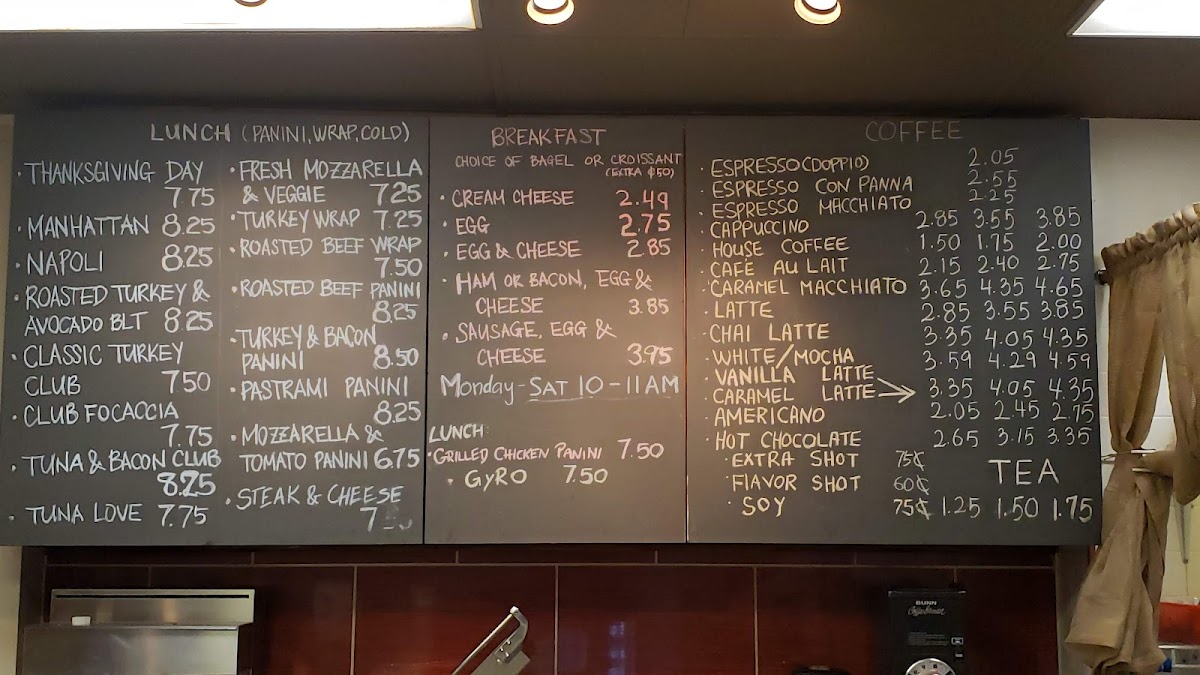 LUNCH (PANINI, WRAP, COLD)
· THANKSGIVING DAY
7.75
· MANHATTAN 8.25
· NAPOLI 8.25
· ROASTED TURKEY &
AVOCADO BLT 8.25
· CLASSIC TURKEY
CLUB 7.50
· CLUB FOCACCIA
7.75
· TUNA & BACON CLUB
8.25
· TUNA LOVE 7.75
· FRESH MOZZARELLA
& VEGGIE 7.25
· TURKEY WRAP 7.25
· ROASTED BEEF WRAP
7.50
· ROASTED BEEF PANINI
8.25
· TURKEY & BACON
PANINI 8.50
· PASTRAMI PANINI
8.25
· MOZZARELLA &
TOMATO PANINI 6.75
· STEAK & CHEESE
BREAKFAST
CHOICE OF BAGEL OR CROISSANT
(EXTRA $50)
· CREAM CHEESE 2.49
· EGG 2.75
· EGG & CHEESE 2.85
· HAM OR BACON, EGG &
CHEESE 3.85
· SAUSAGE, EGG &
CHEESE 3.95
Monday - SAT 10 - 11 AM
LUNCH:
· GRILLED CHICKEN PANINI 7.50
· GYRO 7.50
COFFEE
· ESPRESSO (DOPPIO) 2.05
· ESPRESSO CON PANNA 2.55
· ESPRESSO MACCHIATO 2.25
· CAPPUCCINO 2.85 3.55 3.85
· HOUSE COFFEE 1.50 1.75 2.00
· CAFÉ AU LAIT 2.15 2.40 2.75
· CARAMEL MACCHIATO 3.65 4.35 4.65
· LATTE 2.85 3.55 3.85
· CHAI LATTE 3.35 4.05 4.35
· WHITE/MOCHA 3.59 4.29 4.59
· VANILLA LATTE
· CARAMEL LATTE → 3.35 4.05 4.35
· AMERICANO 2.05 2.45 2.75
· HOT CHOCOLATE 2.65 3.15 3.35
· EXTRA SHOT 75¢
· FLAVOR SHOT 60¢
· SOY 75¢
TEA
1.25 1.50 1.75
BUNN